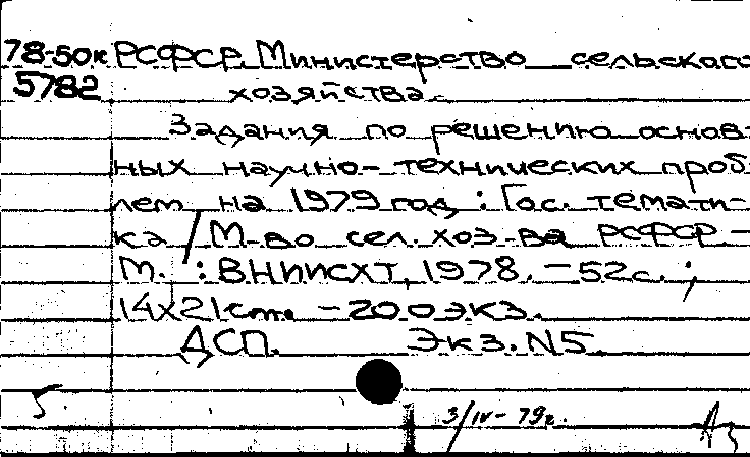 78-50к РСФСР. Министерство сельского
5782 хозяйства.
Задания по решению основ-
ных научно-технических проб-
лем на 1979 год : Гос. темати-
ка / М-во сел. хоз-ва РСФСР -
М. : ВНИИСХТ, 1978. - 52с. ;
14х21см. - 200экз.
ДСП. Экз. N5.
5.
3/IV- 79г.